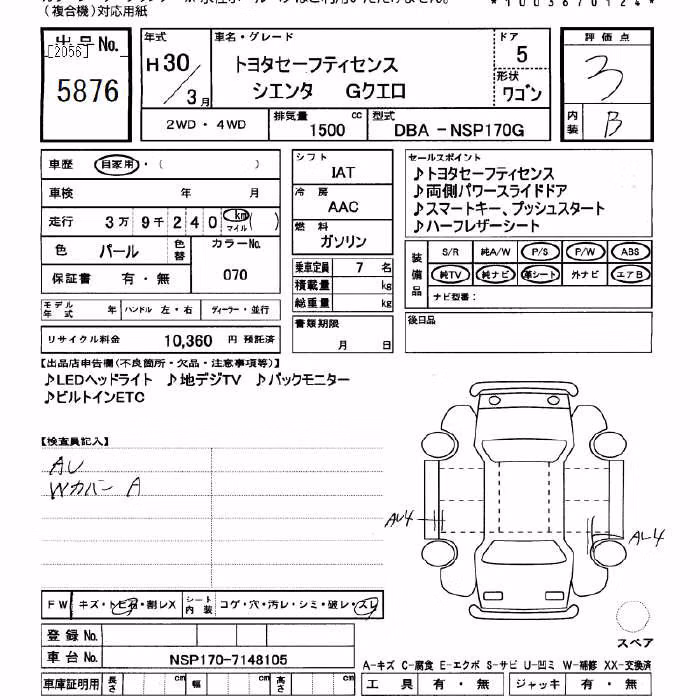 (複合機)対応用紙
*1003670124*
出品No.
[2056]
5876
年式
H30/3月
車名・グレード
トヨタセーフティセンス
シエンタ Gクエロ
ドア
5
形状
ワゴン
評価点
3
内装
B
2WD・4WD
排気量 1500 cc
型式 DBA-NSP170G
車歴 自家用・( )
車検 年 月
走行 3万9千240 km マイル ( )
色 パール 色替
カラーNo.
070
保証書 有・無
モデル年式 年 ハンドル 左・右 ディーラー・並行
リサイクル料金 10,360 円 預託済
シフト
IAT
冷房
AAC
燃料
ガソリン
乗車定員 7 名
積載量 kg
総重量 kg
書類期限
月 日
セールスポイント
♪トヨタセーフティセンス
♪両側パワースライドドア
♪スマートキー、プッシュスタート
♪ハーフレザーシート
装備品
S/R 純A/W P/S P/W ABS
純TV 純ナビ 革シート 外ナビ エアB
ナビ型番:
後日品
【出品店申告欄(不良箇所・欠品・注意事項等)】
♪LEDヘッドライト ♪地デジTV ♪バックモニター
♪ビルトインETC
【検査員記入】
AU
Wカバー A
AU4
AU4
FW キズ・トビ石・割レX
シート内装 コゲ・穴・汚レ・シミ・破レ・スレ
登録No.
車台No. NSP170-7148105
車庫証明用 長さ cm 幅 cm 高さ cm
スペア
A-キズ C-腐食 E-エクボ S-サビ U-凹ミ W-補修 XX-交換済
工具 有・無 ジャッキ 有・無